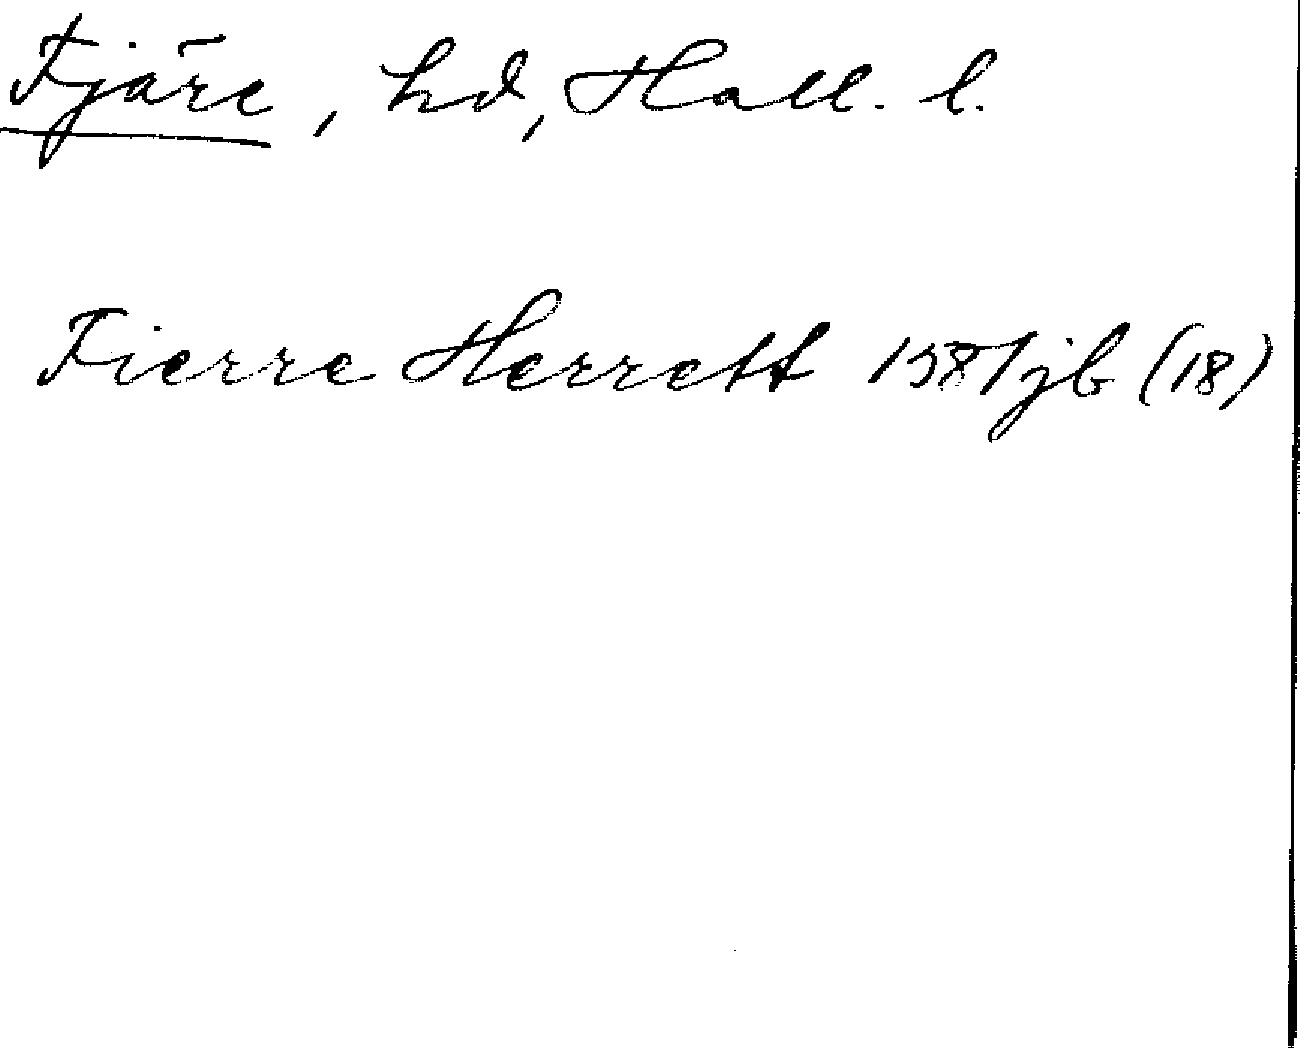 Fjäre, hd, Hall. l.
Fierre Herrett 1581 jb (18)